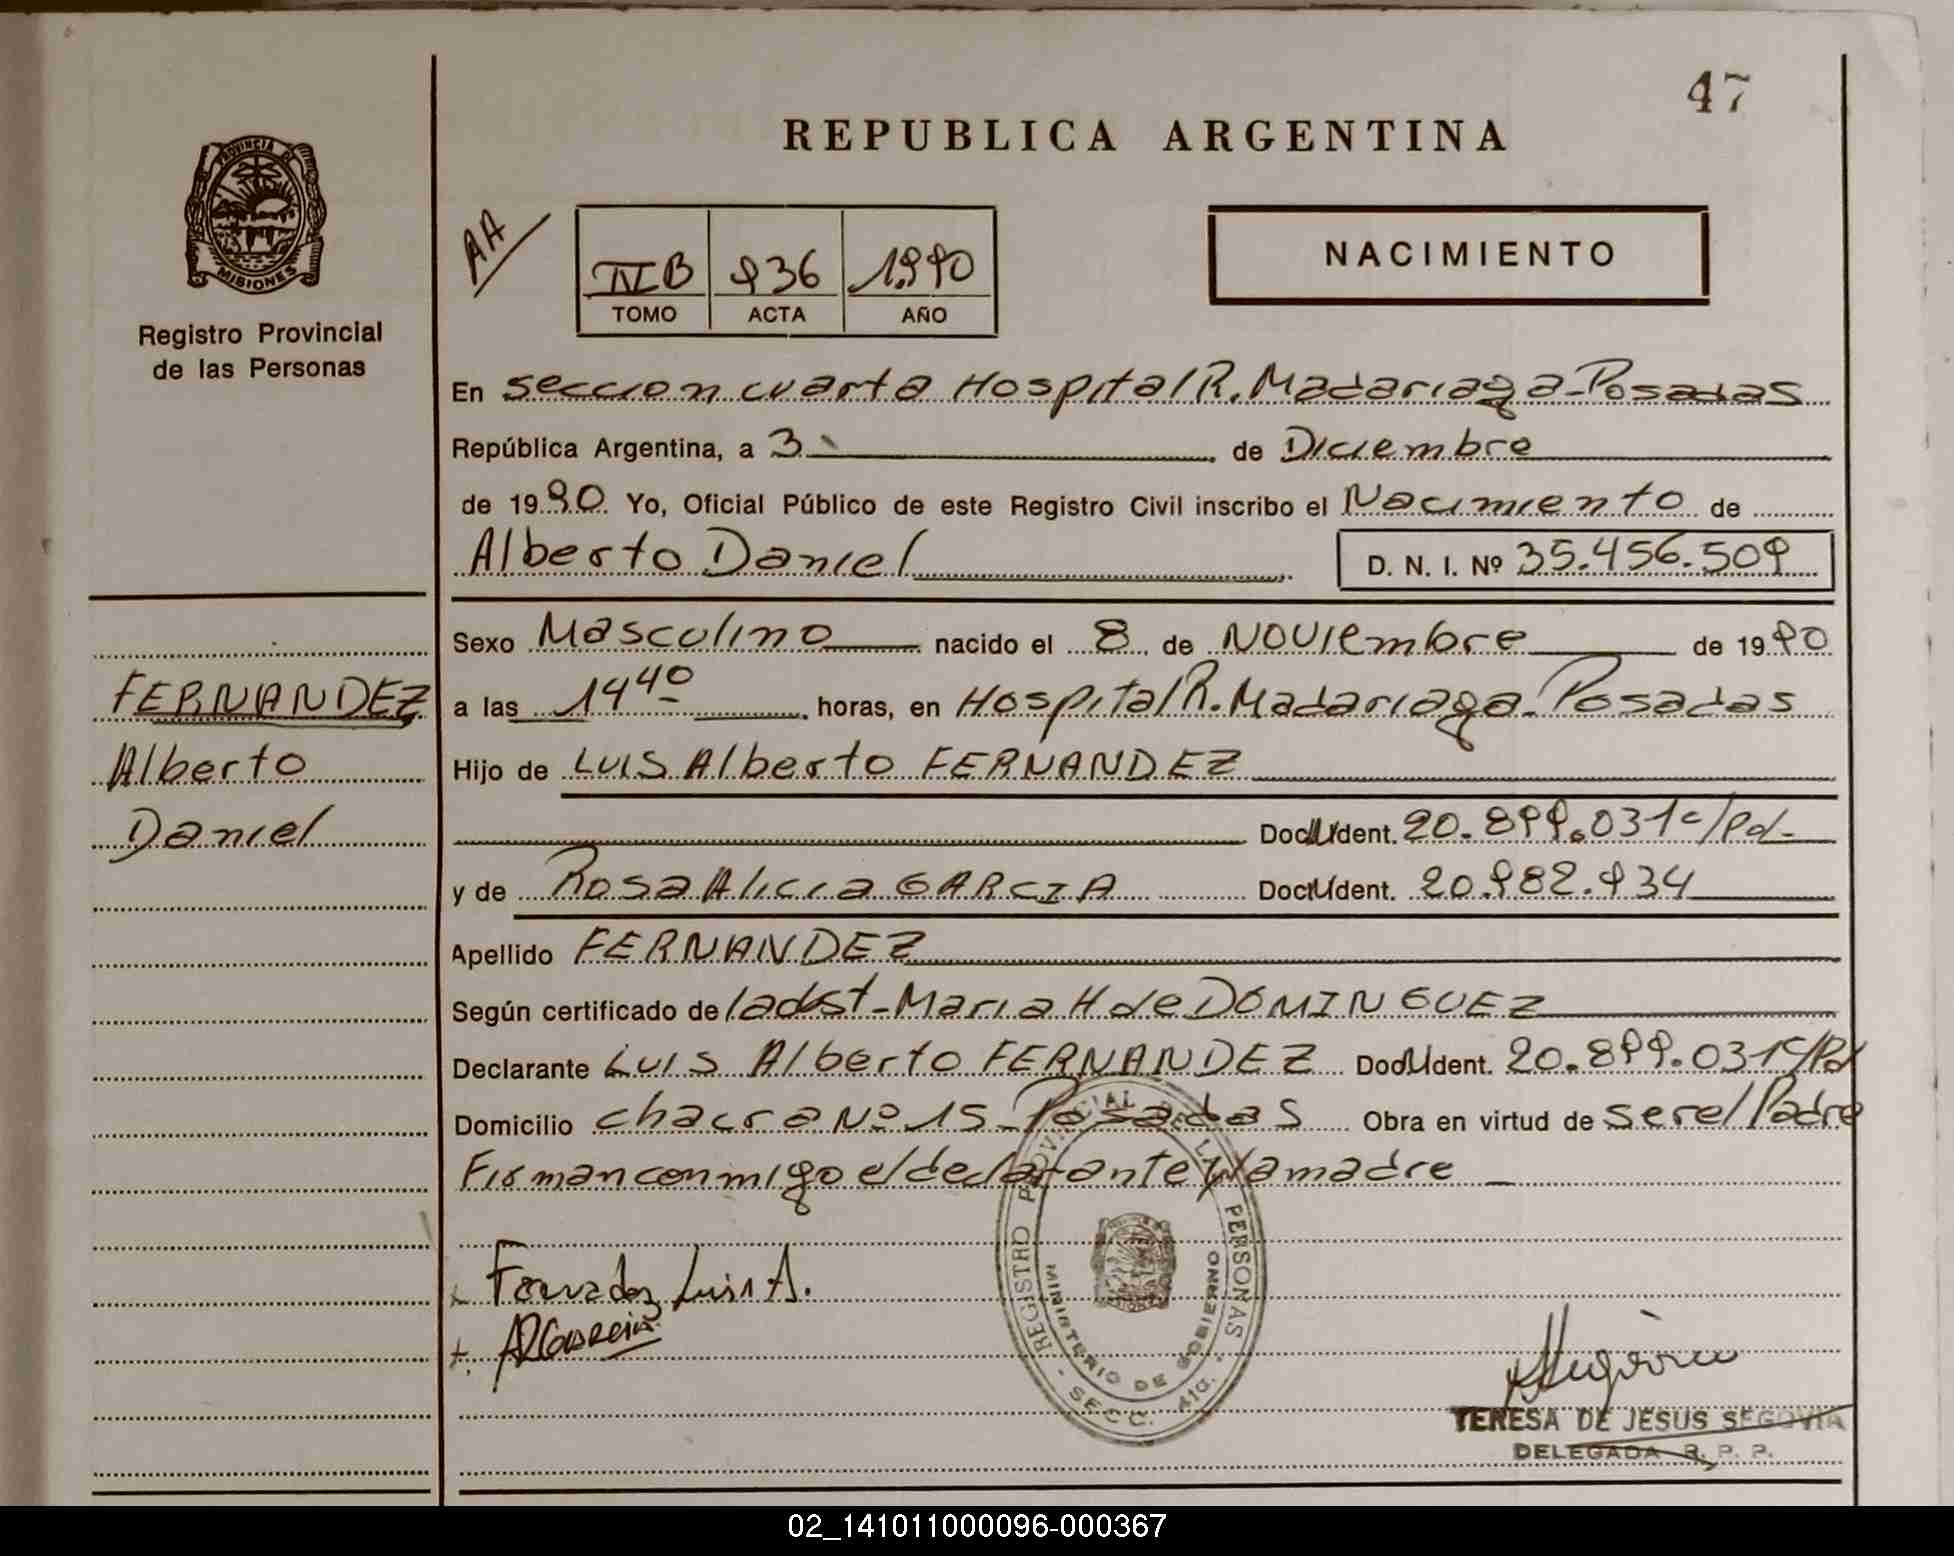 47
REPUBLICA ARGENTINA
PROVINCIA DE MISIONES
Registro Provincial
de las Personas
AA
IV B 936 1990
TOMO ACTA AÑO
NACIMIENTO
En seccion cuarta Hospital R. Madariaga - Posadas
República Argentina, a 3 de Diciembre
de 1990 Yo, Oficial Público de este Registro Civil inscribo el Nacimiento de
Alberto Daniel D. N. I. Nº 35.456.509
Sexo Masculino nacido el 8 de Noviembre de 1990
a las 14 40 horas, en Hospital R. Madariaga - Posadas
Hijo de Luis Alberto FERNANDEZ
Doc. Ident. 20.899.031 c/Pol-
y de Rosa Alicia GARCIA Doc. Ident. 20.982.934
Apellido FERNANDEZ
Según certificado de la obst - Maria H de DOMINGUEZ
Declarante Luis Alberto FERNANDEZ Doc. Ident. 20.899.031 c/Pol
Domicilio chacra Nº 15 - Posadas Obra en virtud de ser el Padre
Firman conmigo el declarante y la madre
FERNANDEZ
Alberto
Daniel
Fernadez Luis A.
REGISTRO PROVINCIAL DE LAS PERSONAS
MINISTERIO DE GOBIERNO
SECC. 4ta.
TERESA DE JESUS SEGOVIA
DELEGADA R. P. P.
02_141011000096-000367